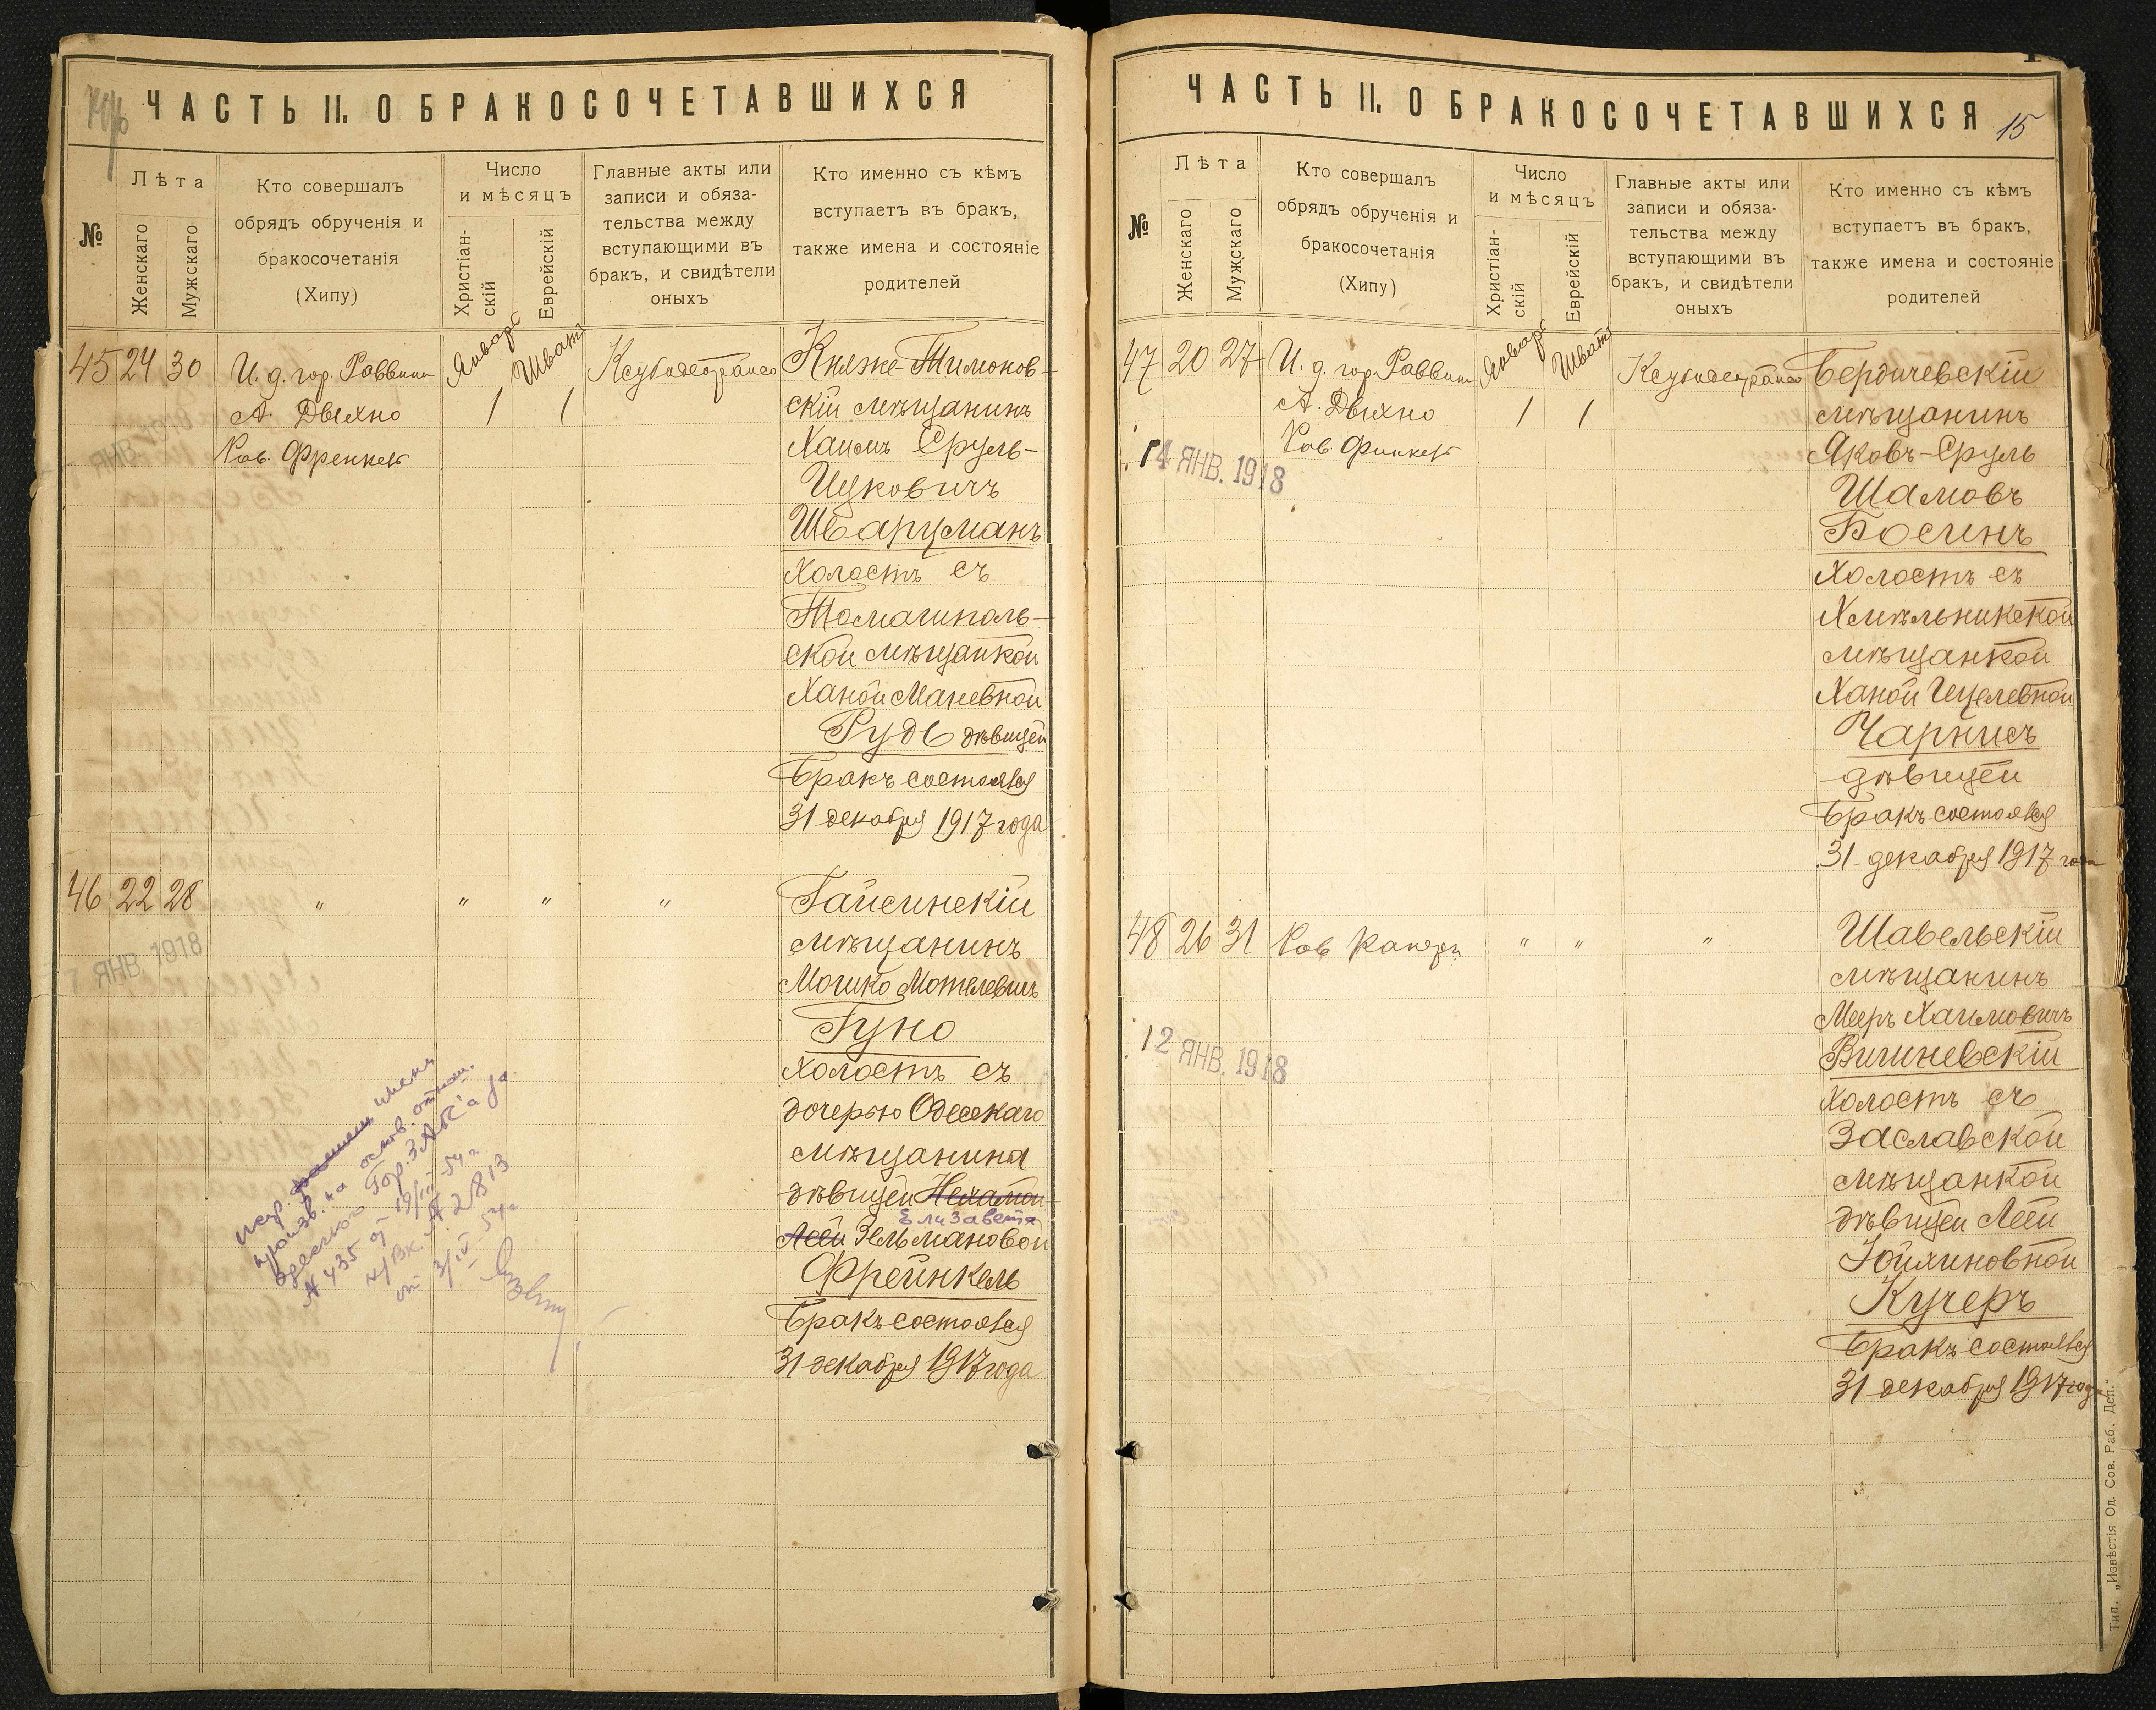 ЧАСТЬ II. О БРАКОСОЧЕТАВШИХСЯ
№
Лѣта
Женскаго
Мужскаго
Кто совершалъ
обрядъ обрученія и
бракосочетанія
(Хипу)
Число
и мѣсяцъ
Христіан-
скій
Еврейскій
Главные акты или
записи и обяза-
тельства между
вступающими въ
бракъ, и свидѣтели
оныхъ
Кто именно съ кѣмъ
вступаетъ въ бракъ,
также имена и состояніе
родителей
45 24 30
И. д. гор. Раввина
А. Дыхно
Рав. Френкель
Январь
1
Шватъ
1
Княже-Тимонов-
скій мѣщанинъ
Хаимъ Сруль-
Ицковичъ
Шварцманъ
Холостъ съ
Томашполь-
ской мѣщанкой
Ханой Маневной
Рудь дѣвицей
Бракъ состоялся
31 декабря 1917 года
46 22 28
" " " "
ЯНВ. 1918
Гайсинскій
мѣщанинъ
Мошко Мотелевичъ
Гуно
Холостъ съ
дочерью Одесскаго
мѣщанина
дѣвицей Нехамой
Елизавета
Леей Зельмановой
Фрейнкель
Бракъ состоялся
31 декабря 1917 года
имени
произв. на основ.
одесского Гор. ЗАГС'а
№ 435 от 19/III-54 г.
№ 2813
от 3/IV-54 г.
ЧАСТЬ II. О БРАКОСОЧЕТАВШИХСЯ
15
№
Лѣта
Женскаго
Мужскаго
Кто совершалъ
обрядъ обрученія и
бракосочетанія
(Хипу)
Число
и мѣсяцъ
Христіан-
скій
Еврейскій
Главные акты или
записи и обяза-
тельства между
вступающими въ
бракъ, и свидѣтели
оныхъ
Кто именно съ кѣмъ
вступаетъ въ бракъ,
также имена и состояніе
родителей
47 20 27
И. д. гор. Раввина
А. Дыхно
Рав. Финкель
Январь
1
Шватъ
1
4 ЯНВ. 1918
Бердичевскій
мѣщанинъ
Яковъ-Сруль
Шамовъ
Босинъ
Холостъ съ
Хмѣльникской
мѣщанкой
Ханой Ицелевной
Чарнисъ
дѣвицей
Бракъ состоялся
31 декабря 1917 года
48 26 31
Рав
" " "
12 ЯНВ. 1918
Шавельскій
мѣщанинъ
Мееръ Хаимовичъ
Вишневскій
Холостъ съ
Заславской
мѣщанкой
дѣвицей Леей
Іойхиновной
Кучеръ
Бракъ состоялся
31 декабря 1917 года
Тип. „Извѣстія Од. Сов. Раб. Деп."